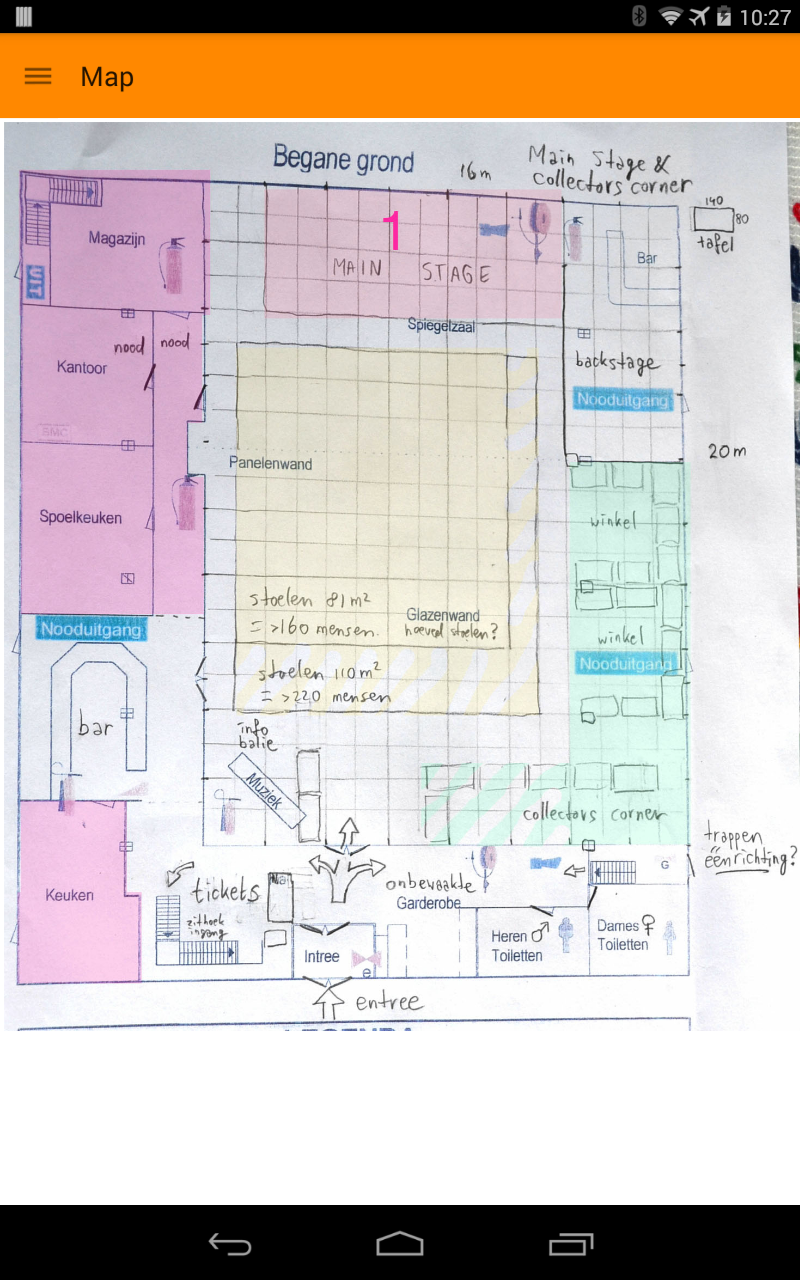 10:27
Map
Begane grond
16m
Main Stage &
collectors corner
140
80
tafel
1
MAIN STAGE
Magazijn
UIT
Bar
Spiegelzaal
nood
nood
Kantoor
backstage
Nooduitgang
BMC
20m
Panelenwand
Spoelkeuken
winkel
stoelen 81m²
= >160 mensen.
Glazenwand
hoeveel stoelen?
Nooduitgang
winkel
Nooduitgang
stoelen 110m²
= >220 mensen
bar
info
balie
Muziek
collectors corner
trappen
éénrichting?
tickets
onbewaakte
Garderobe
G
Keuken
zithoek
ingang
Intree
e
Heren ♂
Toiletten
Dames ♀
Toiletten
entree
LEGENDA